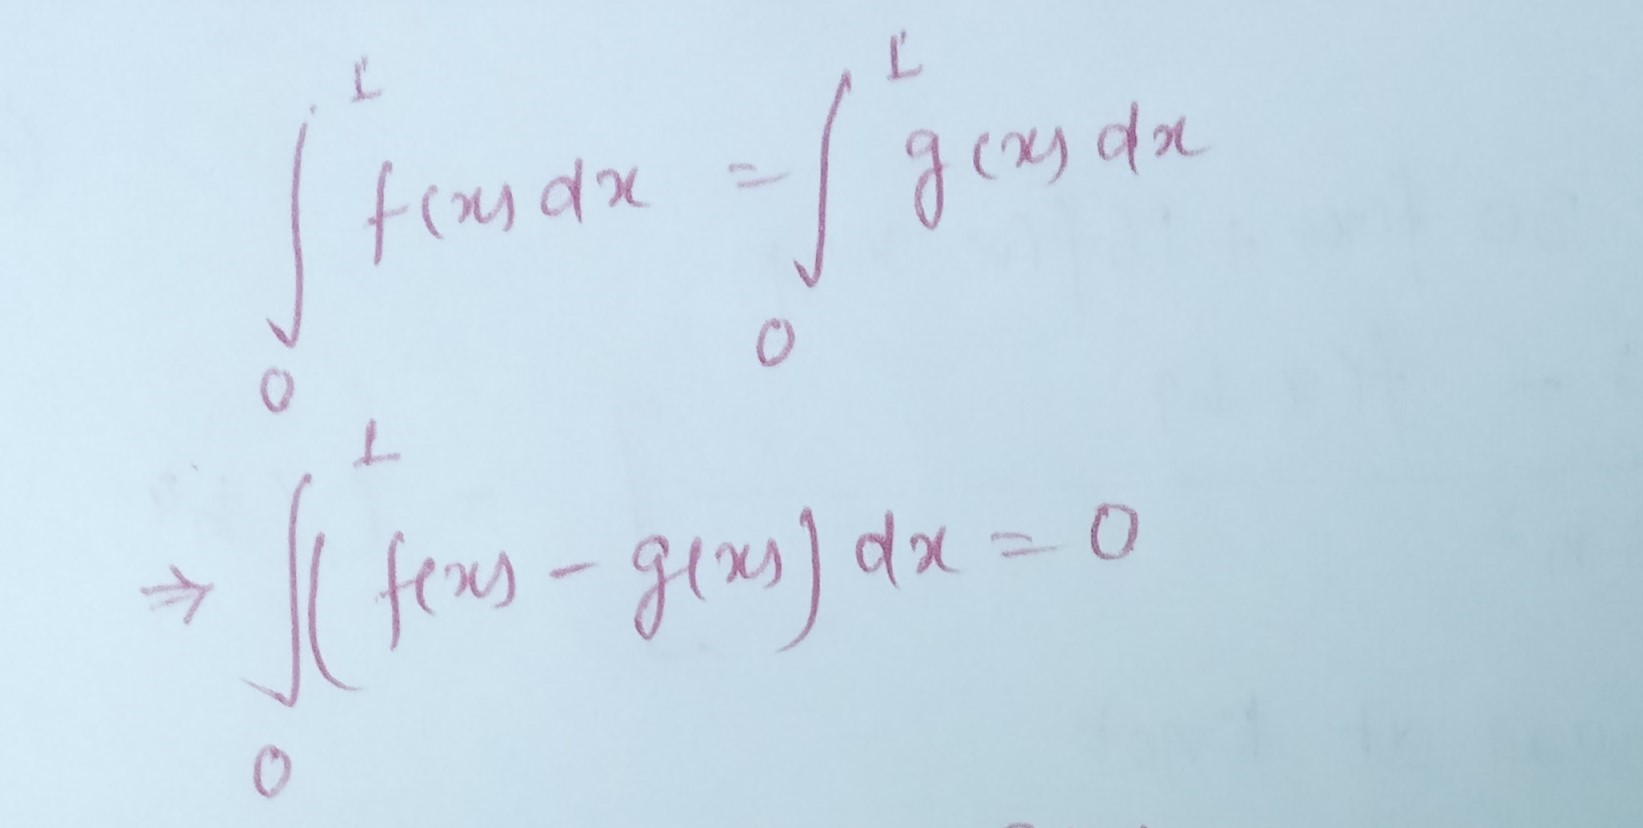 ∫₀¹ f(x) dx = ∫₀¹ g(x) dx
⇒ ∫₀¹ (f(x) - g(x)) dx = 0